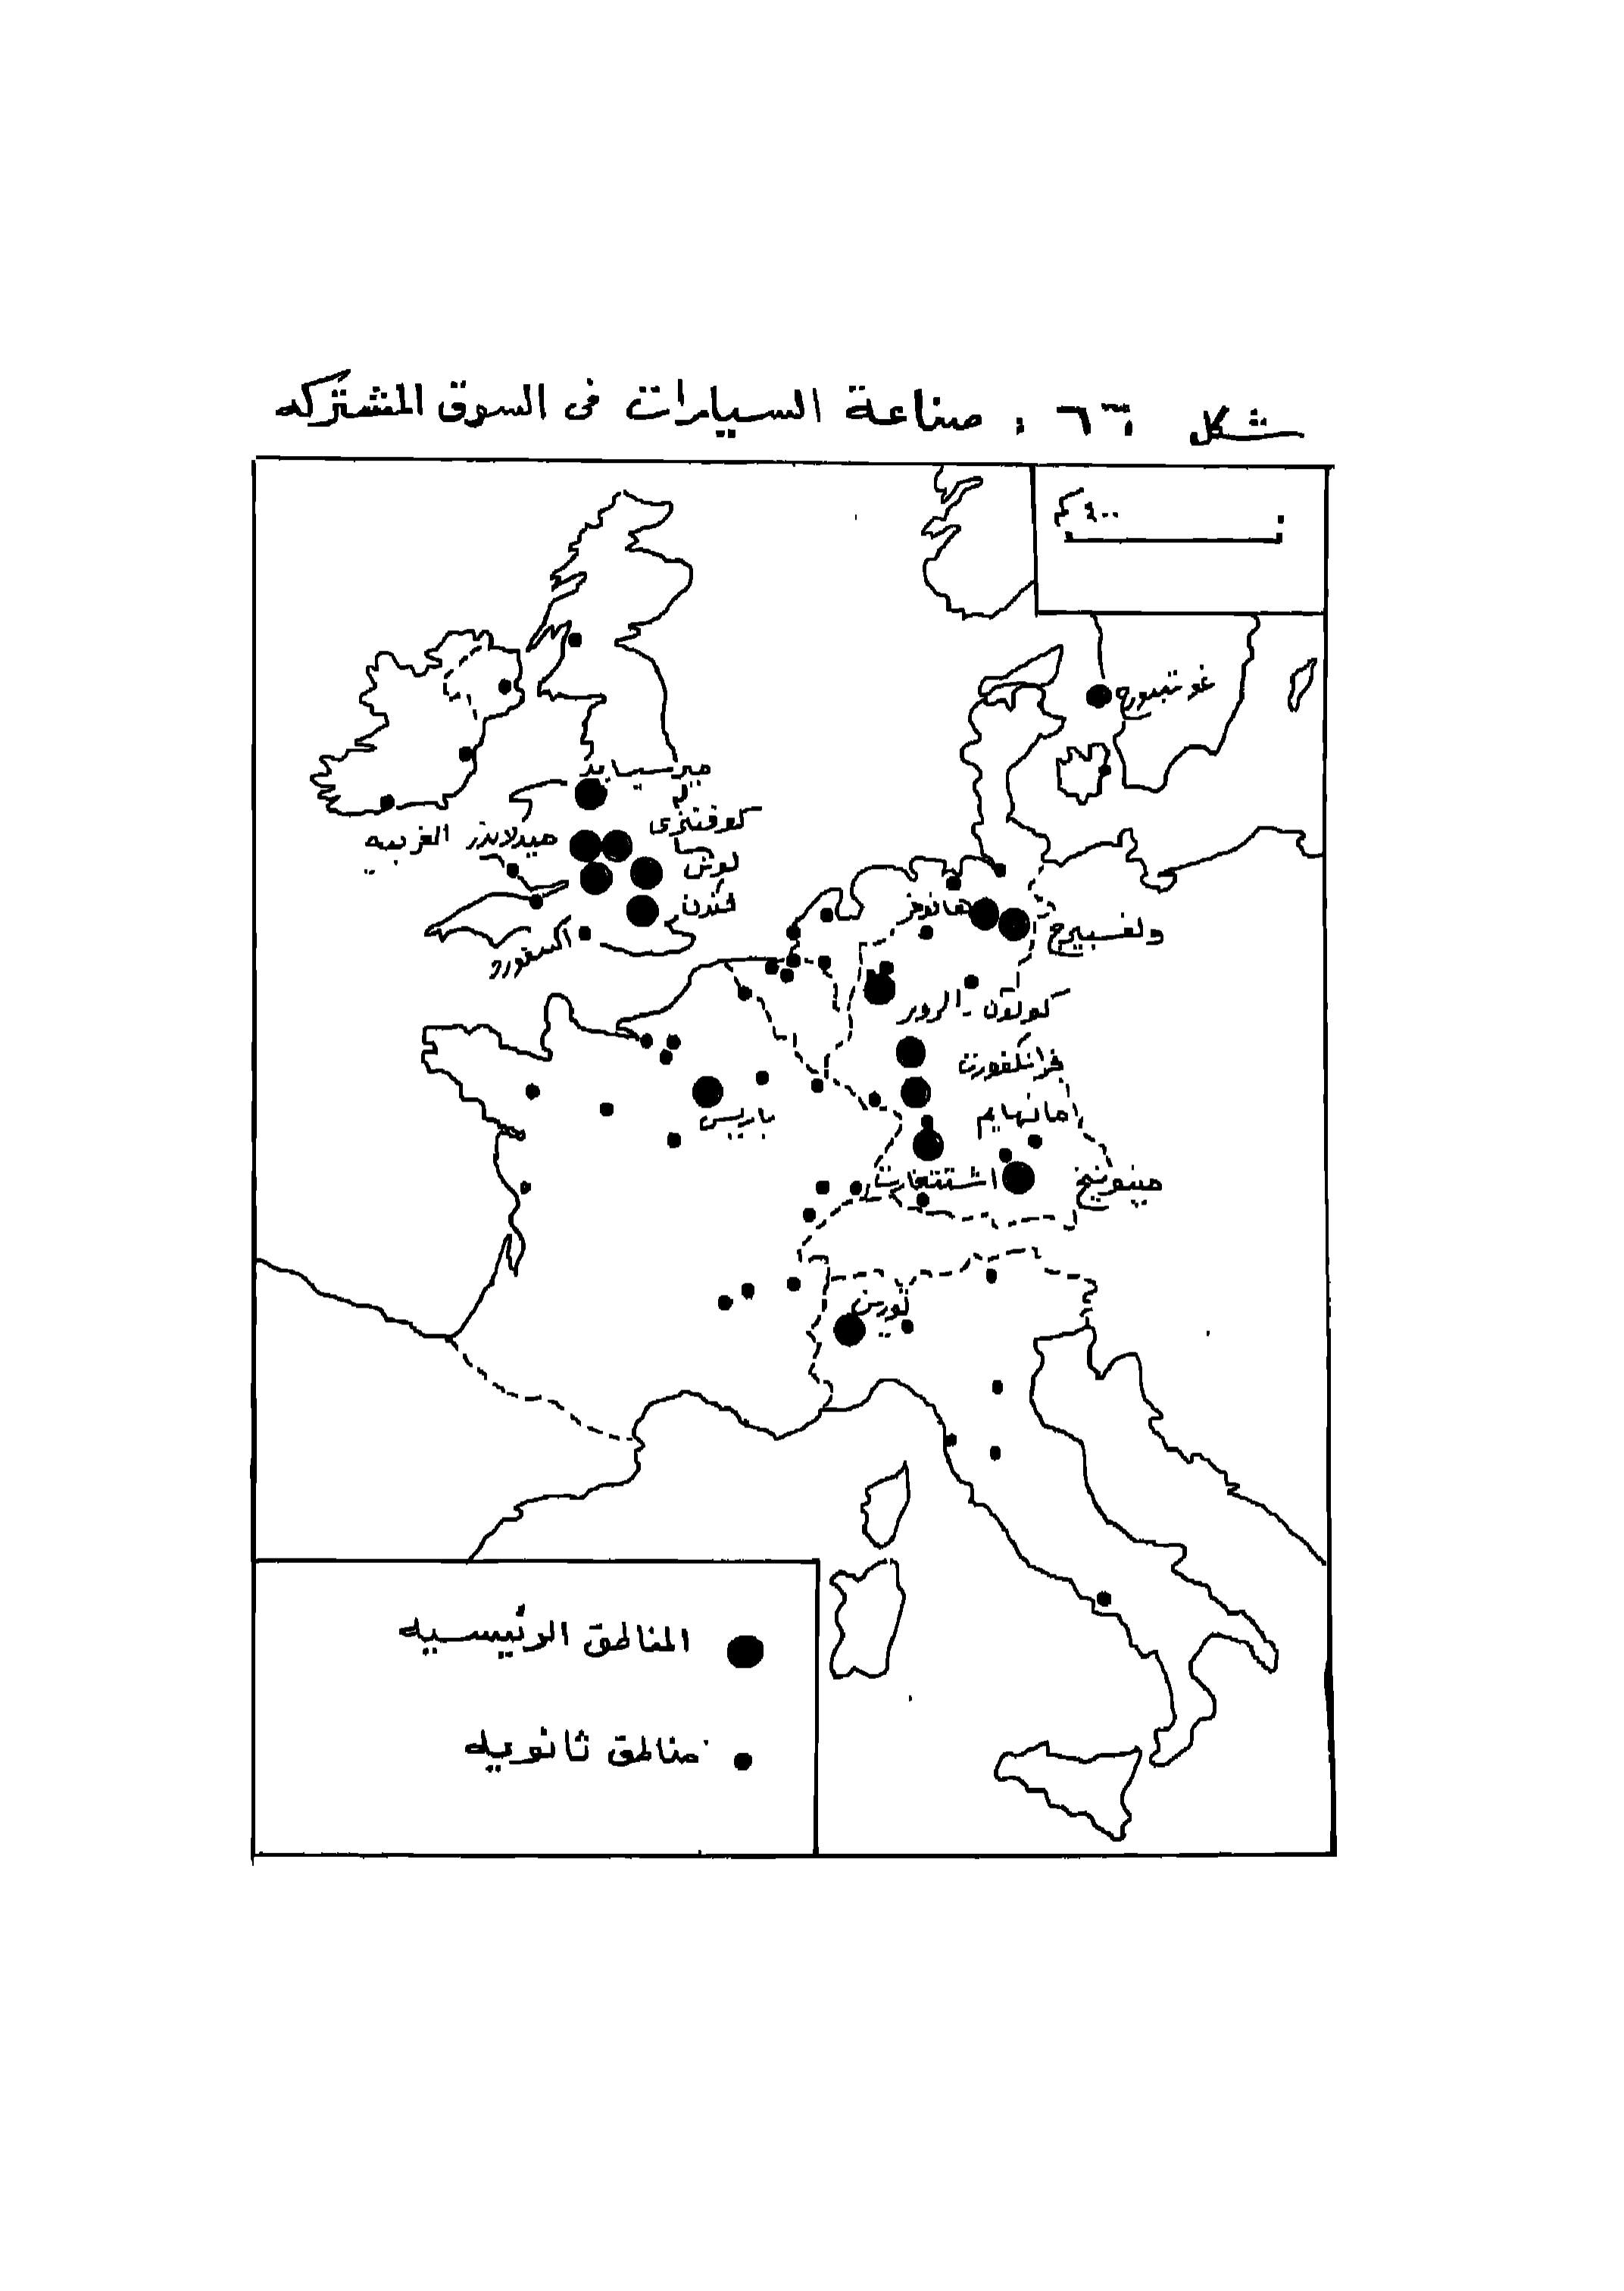 شكل ٦٦ : صناعة السيارات فى السوق المشتركه
٤٠٠ كم
غوتنبورج
ميرسيايد
كوفنترى
ميدلاندز الغربيه
لوتن
لندن
اكسفورد
هانوفر
ولفسبيرج
كولون - الرور
فرانكفورت
مانهايم
باريس
اشتتغارت
مينونيخ
تورين
المناطق الرئيسيه
مناطق ثانويه